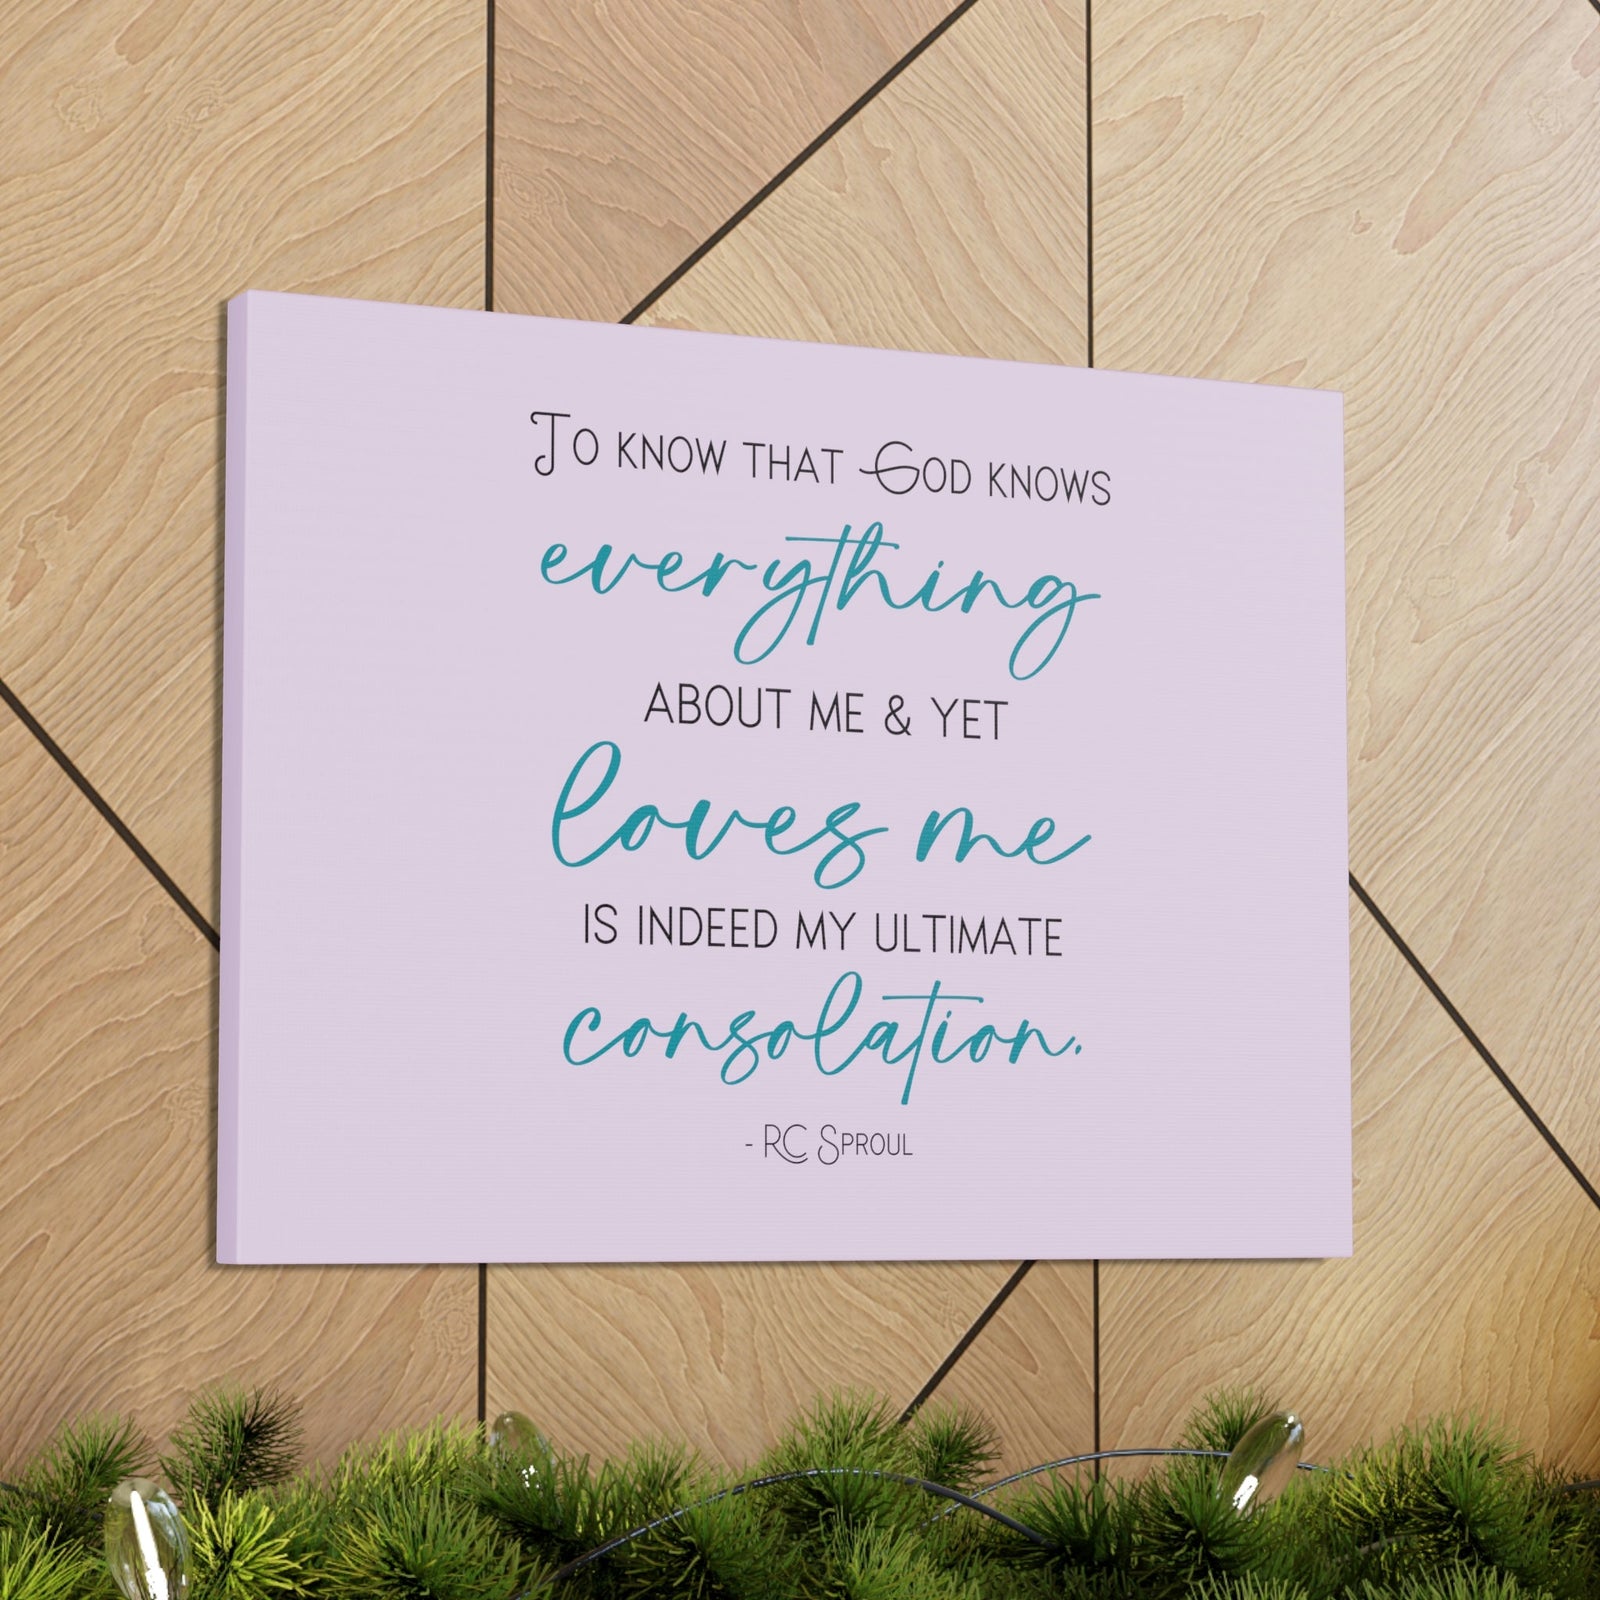 To know that God knows
everything
about me & yet
loves me
is indeed my ultimate
consolation.
- RC Sproul